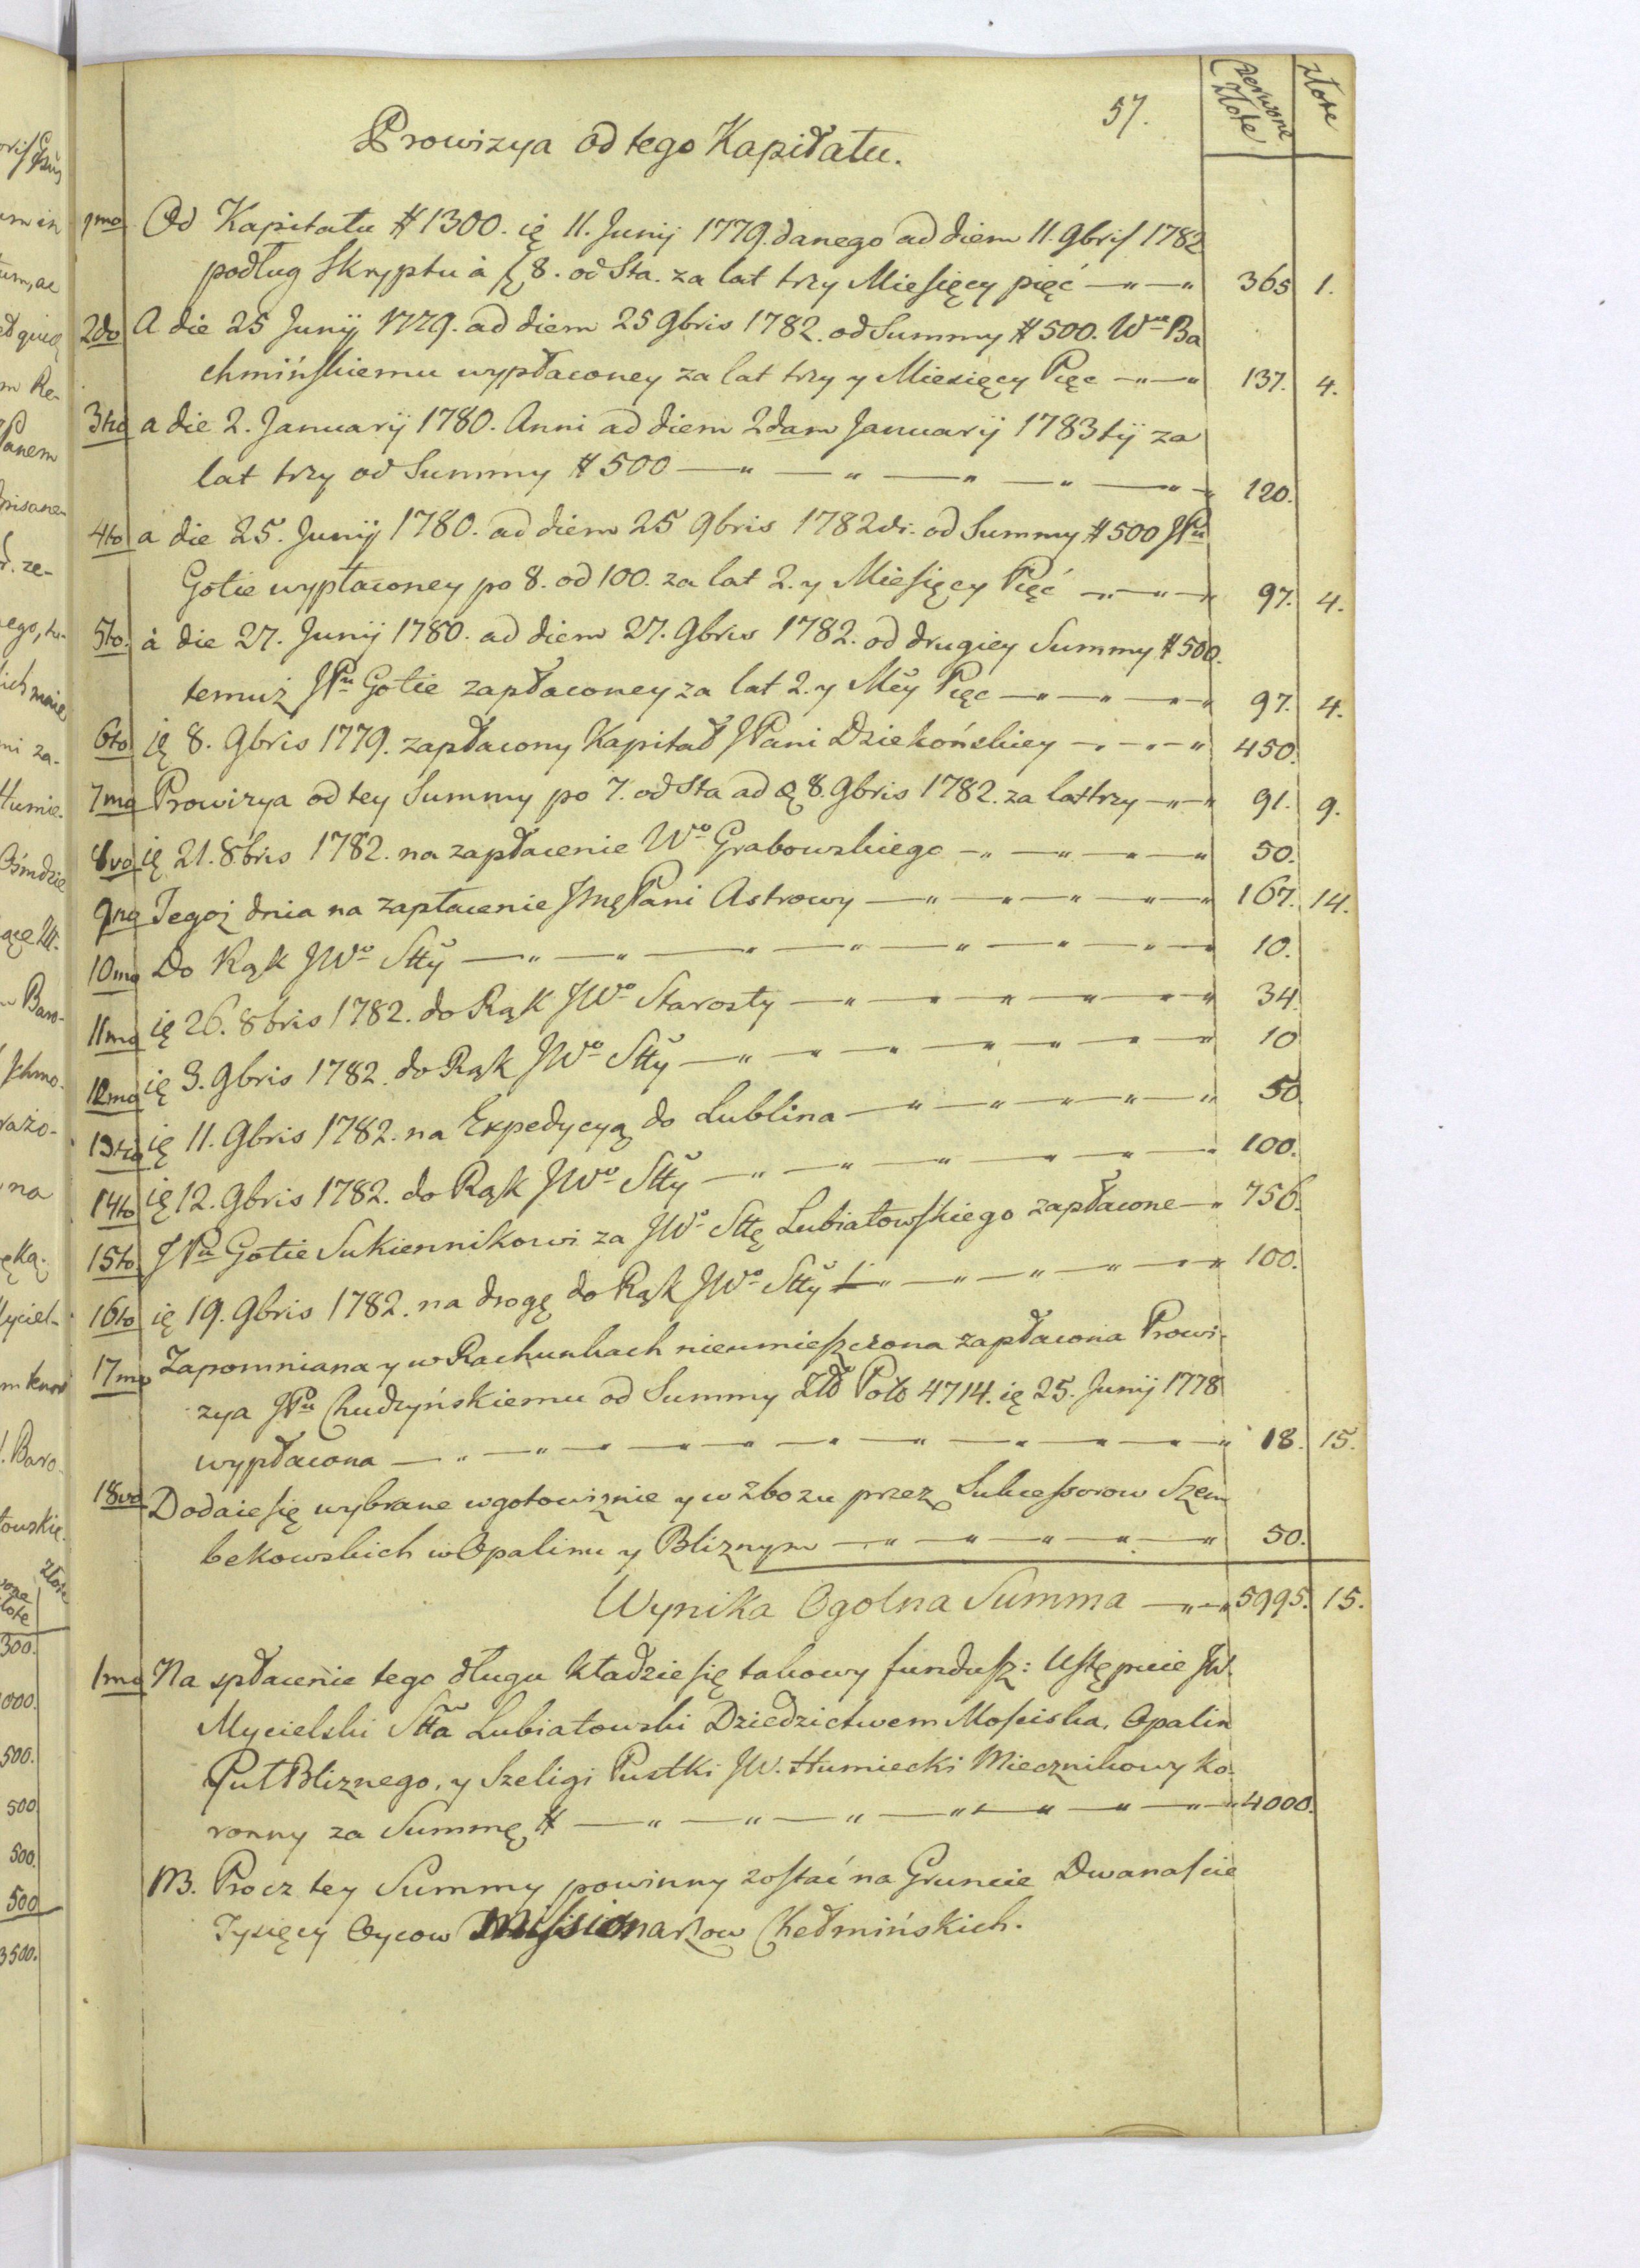 57.
Czerwone Złote
złote
Prowizya od tego Kapitału.
1mo Od Kapitału # 1300. ię 11. Junij 1779. danego ad diem 11. 9bris 1782
podług Skryptu à 8. od Sta. za lat trzy Miesięcy pięć — " — " 365 1.
2do A die 25 Junij 1779. ad diem 25 9bris 1782. od Summy # 500. Wu Ba
chmińskiemu wypłaconey za lat trzy y Miesięcy Pięc — " — " 137. 4.
3tio a die 2. Januarij 1780. Anni ad diem 2dam Januarij 1783tij za
lat trzy od Summy # 500 — " — " — " — " — " 120.
4to a die 25. Junij 1780. ad diem 25 9bris 1782di. od Summy # 500 JPu
Gotie wypłaconey po 8. od 100. za lat 2. y Miesięcy Pięć — " — " — 97. 4.
5to. à die 27. Junij 1780. ad diem 27. 9bris 1782. od drugiey Summy # 500.
temuż JPu Gotie zapłaconey za lat 2. y Mcy Pięc — " — " — " 97. 4.
6to ię 8. 9bris 1779. zapłacony Kapitał JPani Dziekońskiey — " — " — " 450.
7mo Prowizya od tey Summy po 7. od Sta ad 8. 9bris 1782. za lat trzy — " — " 91. 9.
8vo ię 21. 8bris 1782. na zapłacenie Wo Grabowskiego — " — " — " — " 50.
9no Tegoż dnia na zapłacenie Jmę Pani Astrowy — " — " — " — " — " 167. 14.
10mo Do Rąk JWo Stty — " — " — " — " — " — " — " 10.
11mo ię 26. 8bris 1782. do Rąk JWo Starosty — " — " — " — " — " 34.
12mo ię 3. 9bris 1782. do Rąk JWo Stty — " — " — " — " — " — " 10
13tio ię 11. 9bris 1782. na Expedycyą do Lublina — " — " — " — " — " 50
14to ię 12. 9bris 1782. do Rąk JWo Stty — " — " — " — " — " — " 100.
15to JPu Gotie Sukiennikowi za JWo Sttę Lubiatowskiego zapłacone — " 756.
16to ię 19. 9bris 1782. na drogę do Rąk JWo Stty — " — " — " — " — " 100.
17mo Zapomniana y w Rachunkach nieumieszczona zapłacona Prowi-
zya JPu Chudzyńskiemu od Summy Zło Pols 4714. ię 25. Junij 1778
wypłacona — " — " — " — " — " — " — " — " 18. 15.
18vo Dodaie się wybrane w gotowiznie y w zbozu przez Sukcessorow Szem
bekowskich w Opalinu y Bliznym — " — " — " — " — " 50.
Wynika Ogolna Summa — " — " 5995. 15.
1mo Na spłacenie tego długu kładzie się takowy fundusz: Ustępuie JW.
Mycielski Stta Lubiatowski Dziedzictwem Mosciska, Opalin
Puł Bliznego, y Szeligi Pustki JW. Humiecki Miecznikowy Ko-
ronny za Summę # — " — " — " — " — " — " — " 4000.
NB. Procz tey Summy powinny zostać na Gruncie Dwanascie
Tysięcy Oycow Missionarzow Chełmińskich.